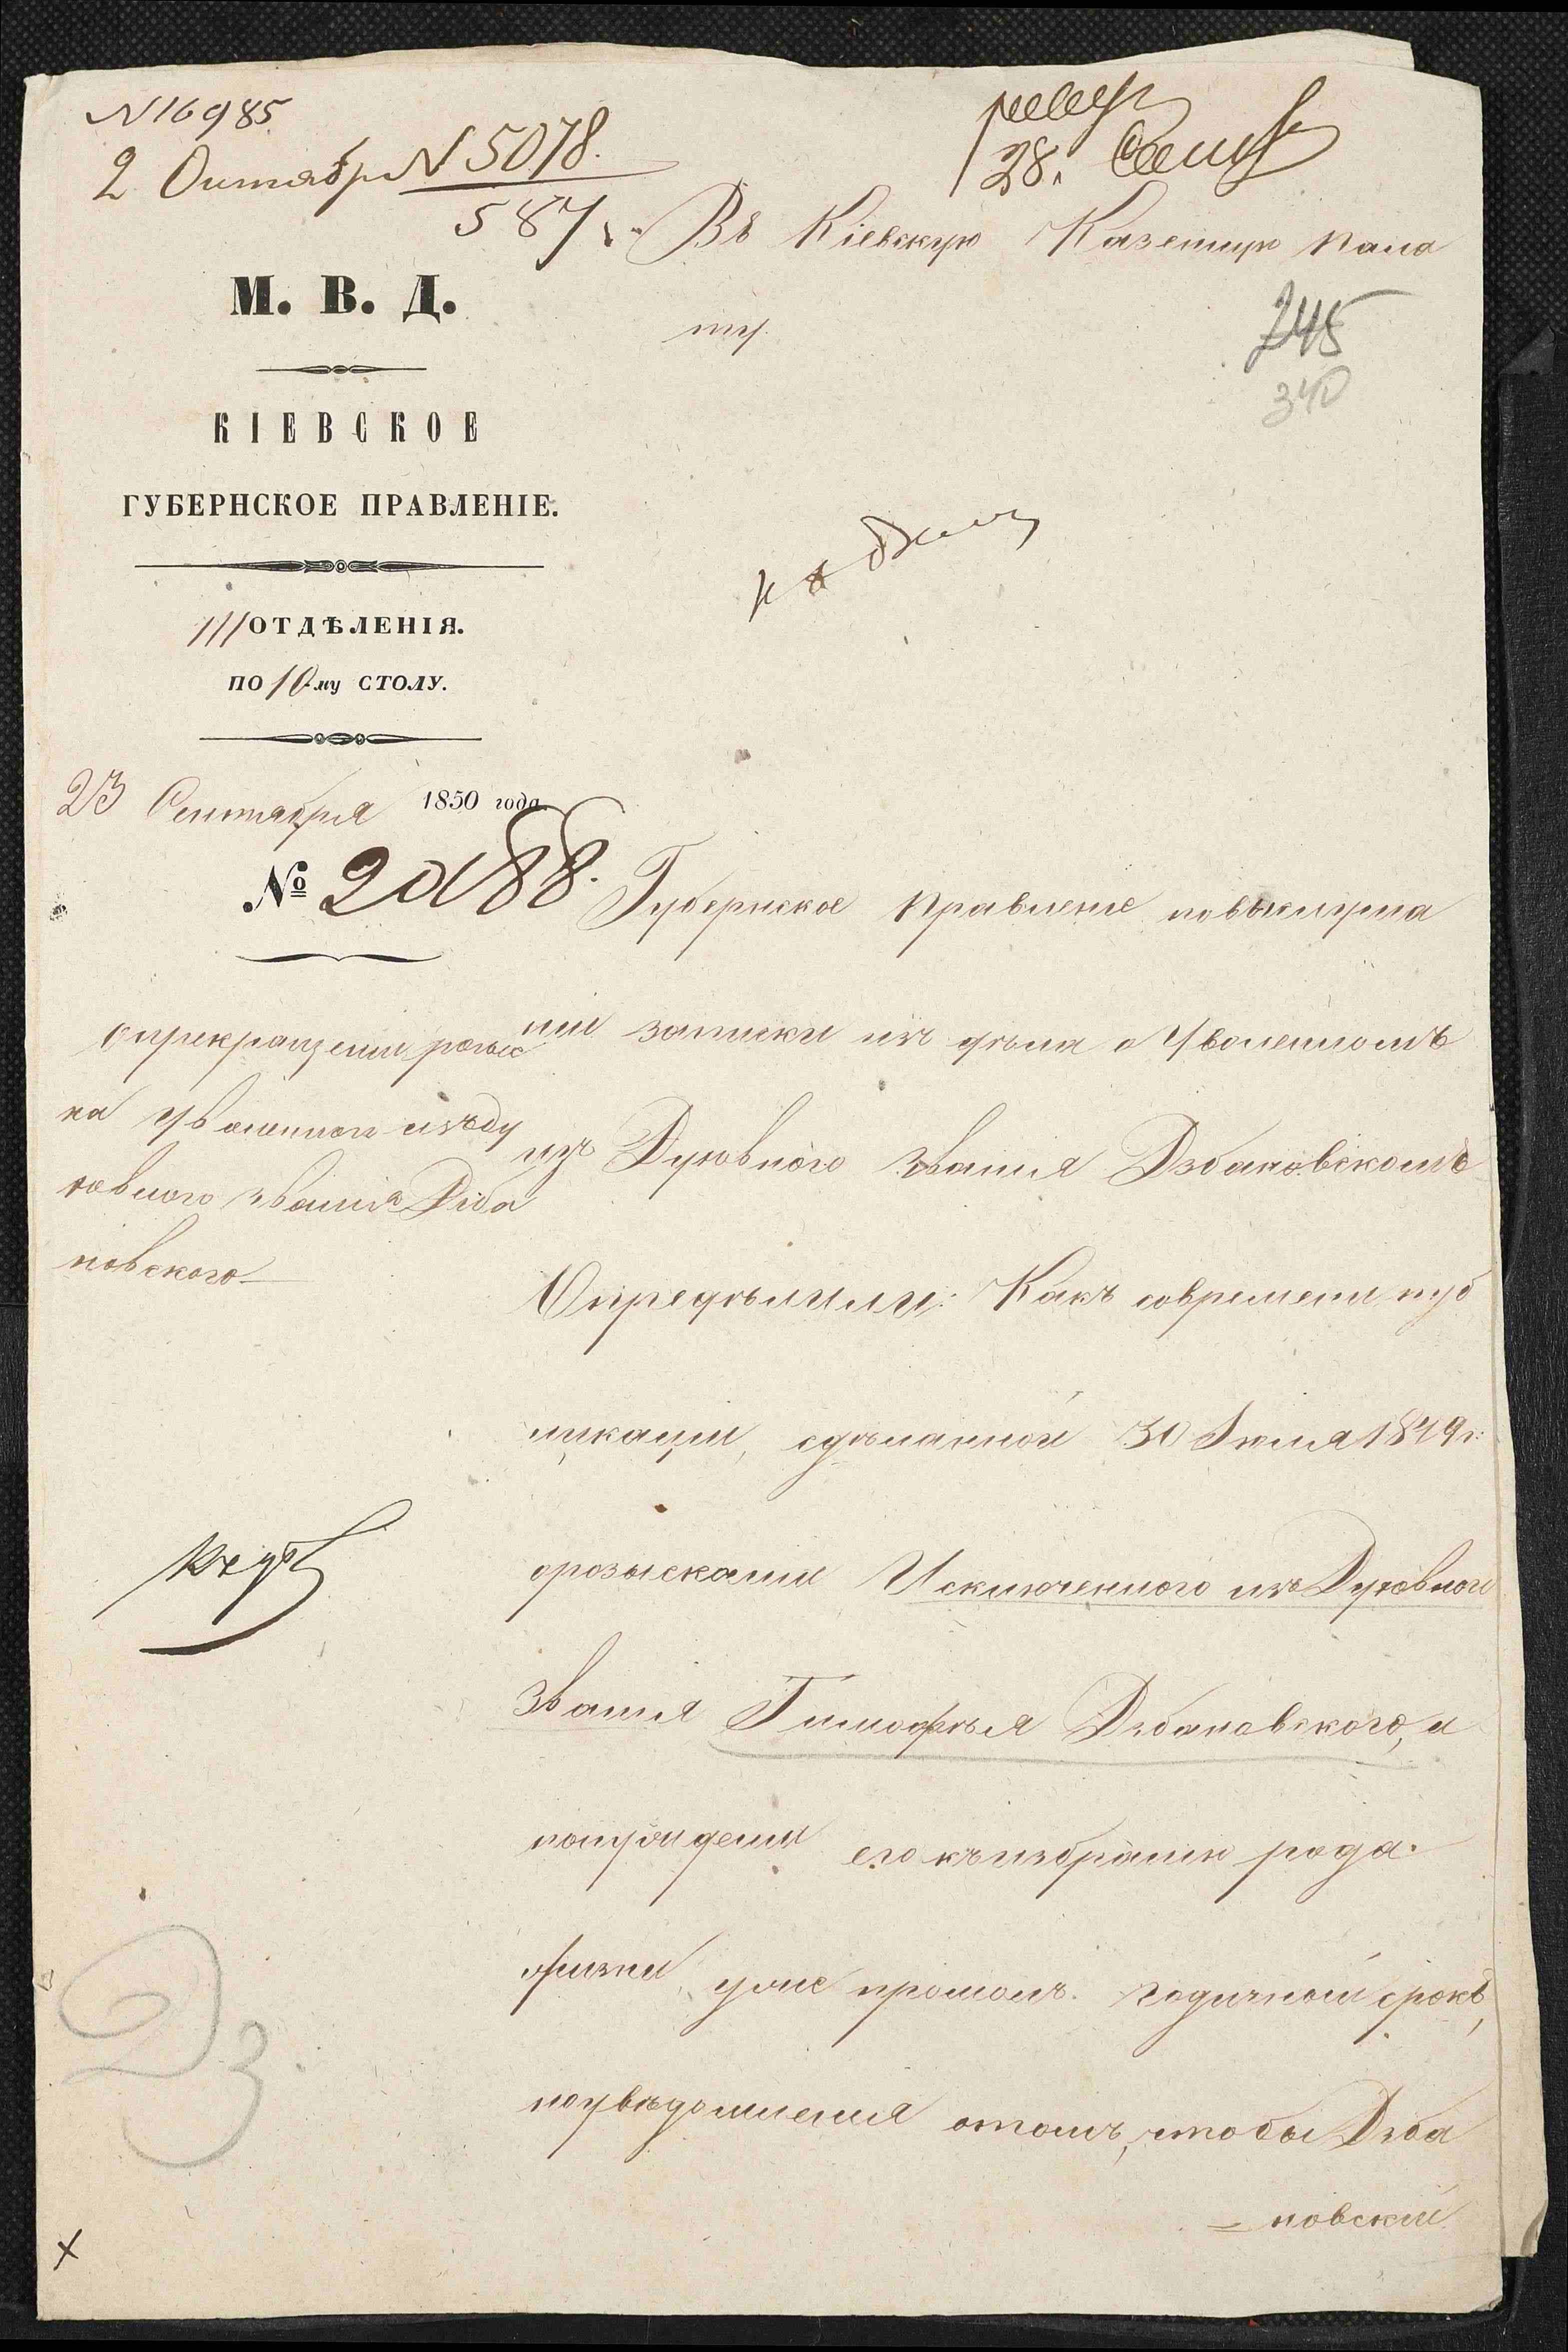 N 16985
2 Октябр N 5078.
587
28. Сент
Въ Кіевскую Казенную Пала
ту.
245
340
М. В. Д.
КІЕВСКОЕ
ГУБЕРНСКОЕ ПРАВЛЕНІЕ.
III ОТДѢЛЕНІЯ.
ПО 10-му СТОЛУ.
23 Сентября 1850 года.
къ дѣлу
О прекращеніи розыс
ка уволенного изъ ду
ховного званія Дзба
новского
Губернское Правленіе повыслуша
ніи записки изъ дѣла о Уволенномъ
изъ Духовного Званія Дзбановскомъ
Опредѣлили: Какъ современи пуб
ликаціи, сдѣланной 30 Іюля 1849 г:
орозысканіи Исключенного изъ Духовного
Званія Тимофѣя Дзбановского, и
попуждени его къизбранію рода
жизни, уже прошолъ годичный срокъ,
ноувѣдомленія отомъ, чтобы Дзба
= новскій
Дз.
х